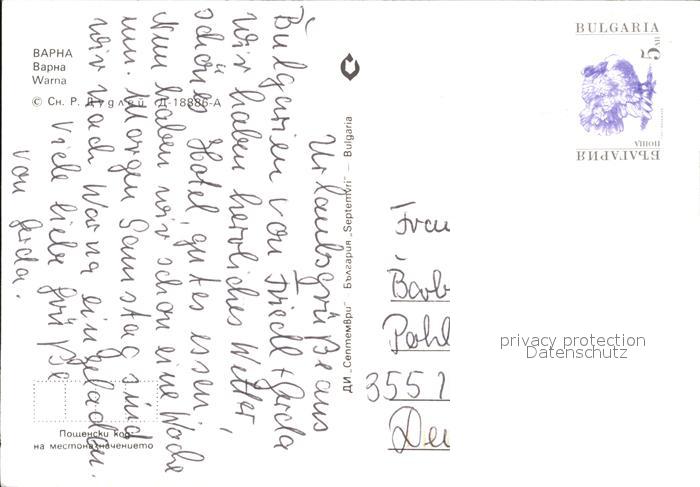 BULGARIA
5
ПОЩА
БЪЛГАРИЯ
ВАРНА
Варна
Warna
© Сн. Р. Дудлей Д-18886-А
ДИ „Септември" България „Septemvri" — Bulgaria
Urlaubsgrüße aus
Bulgarien von Friedl + Gerda
wir haben herrliches Wetter,
schönes Hotel gutes essen,
Nun haben wir schon eine Woche
um. Morgen Samstag sind
wir nach Warna eingeladen.
Viele liebe Grüße
von Gerda.
Frau
Barb
Pohl
3551
Deu
privacy protection
Datenschutz
Пощенски код
на местоназначението